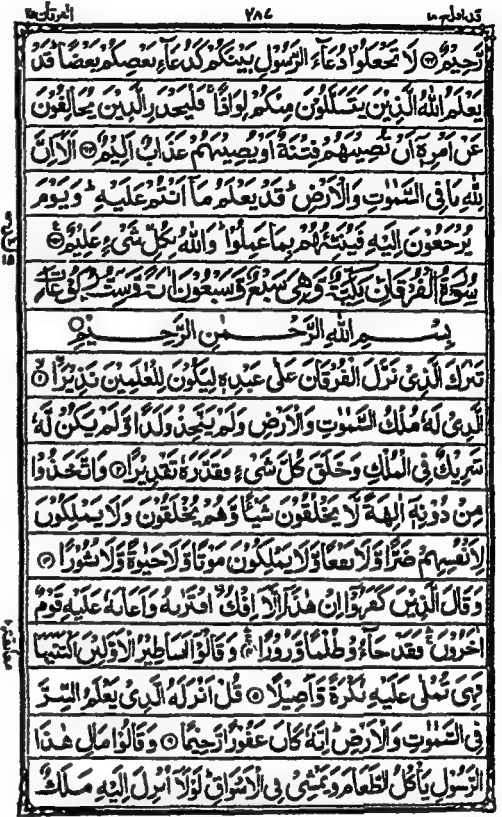 قد افلح ١٨ ٢٨٧ الفرقان ٢٥
رَّحِيْمٌ ۟ لَا تَجْعَلُوْا دُعَآءَ الرَّسُوْلِ بَيْنَكُمْ كَدُعَآءِ بَعْضِكُمْ بَعْضًا ؕ قَدْ
يَعْلَمُ اللّٰهُ الَّذِيْنَ يَتَسَلَّلُوْنَ مِنْكُمْ لِوَاذًا ۚ فَلْيَحْذَرِ الَّذِيْنَ يُخَالِفُوْنَ
عَنْ اَمْرِهٖۤ اَنْ تُصِيْبَهُمْ فِتْنَةٌ اَوْ يُصِيْبَهُمْ عَذَابٌ اَلِيْمٌ ﴿۶۳﴾ اَلَاۤ اِنَّ
لِلّٰهِ مَا فِي السَّمٰوٰتِ وَالْاَرْضِ ؕ قَدْ يَعْلَمُ مَاۤ اَنْتُمْ عَلَيْهِ ؕ وَيَوْمَ
يُرْجَعُوْنَ اِلَيْهِ فَيُنَبِّئُهُمْ بِمَا عَمِلُوْا ؕ وَاللّٰهُ بِكُلِّ شَيْءٍ عَلِيْمٌ ﴿۶۴﴾
سُوْرَةُ الْفُرْقَانِ مَكِّيَّةٌ وَّهِيَ سَبْعٌ وَّسَبْعُوْنَ اٰيَةً وَّسِتُّ رُكُوْعَاتٍ
بِسْمِ اللّٰهِ الرَّحْمٰنِ الرَّحِيْمِ
تَبٰرَكَ الَّذِيْ نَزَّلَ الْفُرْقَانَ عَلٰى عَبْدِهٖ لِيَكُوْنَ لِلْعٰلَمِيْنَ نَذِيْرًا ﴿۱﴾
الَّذِيْ لَهٗ مُلْكُ السَّمٰوٰتِ وَالْاَرْضِ وَلَمْ يَتَّخِذْ وَلَدًا وَّلَمْ يَكُنْ لَّهٗ
شَرِيْكٌ فِي الْمُلْكِ وَخَلَقَ كُلَّ شَيْءٍ فَقَدَّرَهٗ تَقْدِيْرًا ﴿۲﴾ وَاتَّخَذُوْا
مِنْ دُوْنِهٖۤ اٰلِهَةً لَّا يَخْلُقُوْنَ شَيْـًٔا وَّهُمْ يُخْلَقُوْنَ وَلَا يَمْلِكُوْنَ
لِاَنْفُسِهِمْ ضَرًّا وَّلَا نَفْعًا وَّلَا يَمْلِكُوْنَ مَوْتًا وَّلَا حَيٰوةً وَّلَا نُشُوْرًا ﴿۳﴾
وَقَالَ الَّذِيْنَ كَفَرُوْۤا اِنْ هٰذَاۤ اِلَّاۤ اِفْكُ ۨافْتَرٰىهُ وَاَعَانَهٗ عَلَيْهِ قَوْمٌ
اٰخَرُوْنَ ۛۚ فَقَدْ جَآءُوْ ظُلْمًا وَّزُوْرًا ﴿۴﴾ وَقَالُوْۤا اَسَاطِيْرُ الْاَوَّلِيْنَ اكْتَتَبَهَا
فَهِيَ تُمْلٰى عَلَيْهِ بُكْرَةً وَّاَصِيْلًا ﴿۵﴾ قُلْ اَنْزَلَهُ الَّذِيْ يَعْلَمُ السِّرَّ
فِي السَّمٰوٰتِ وَالْاَرْضِ ؕ اِنَّهٗ كَانَ غَفُوْرًا رَّحِيْمًا ﴿۶﴾ وَقَالُوْا مَالِ هٰذَا
الرَّسُوْلِ يَاْكُلُ الطَّعَامَ وَيَمْشِيْ فِي الْاَسْوَاقِ ؕ لَوْلَاۤ اُنْزِلَ اِلَيْهِ مَلَكٌ